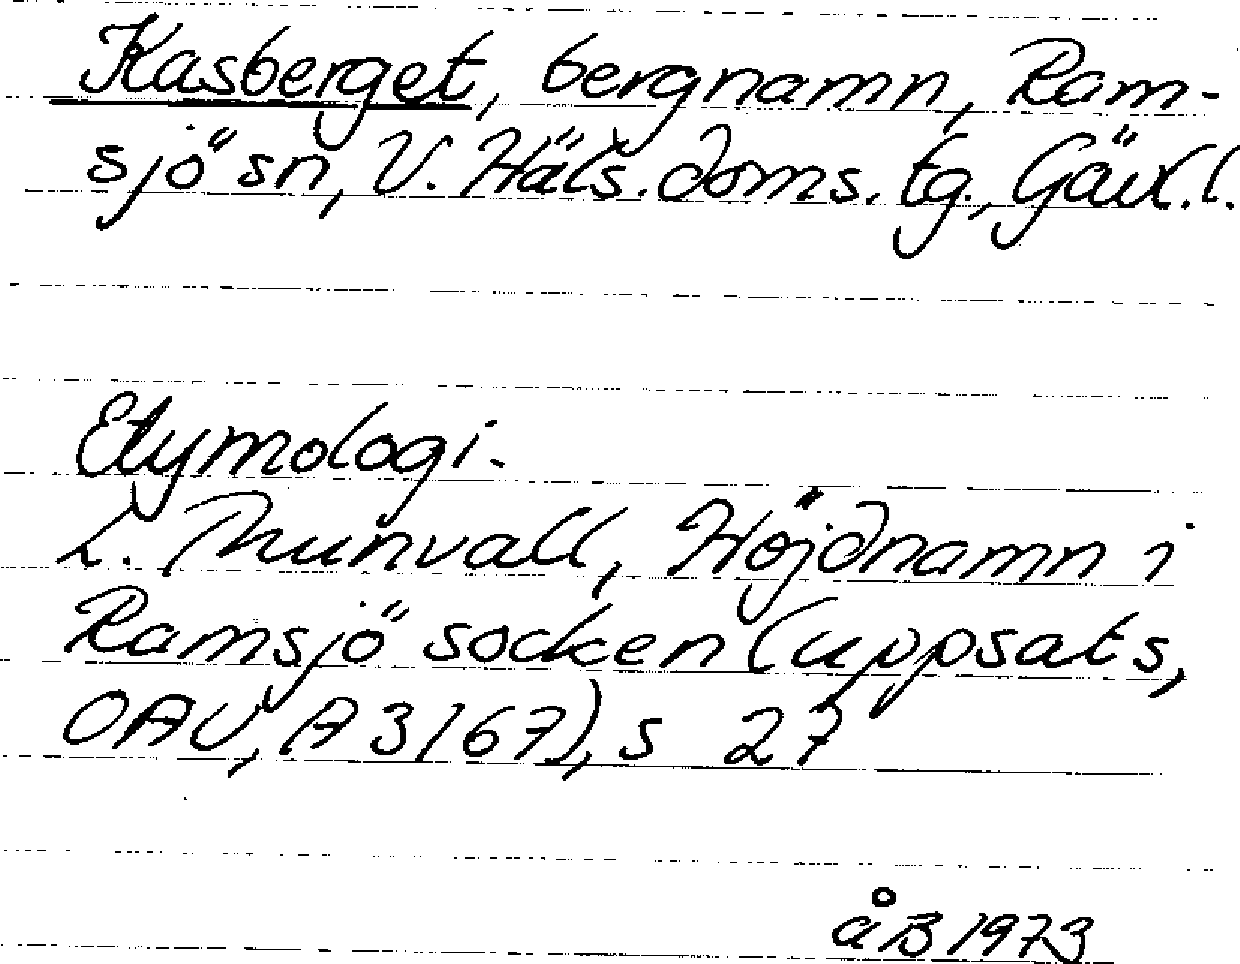 Kasberget, bergnamn, Ram-
sjö sn, V. Häls. doms. tg., Gävl.l.
Etymologi.
L. Thunvall, Höjdnamn i
Ramsjö socken (uppsats,
OAU, A 3167), s 27
åB 1973